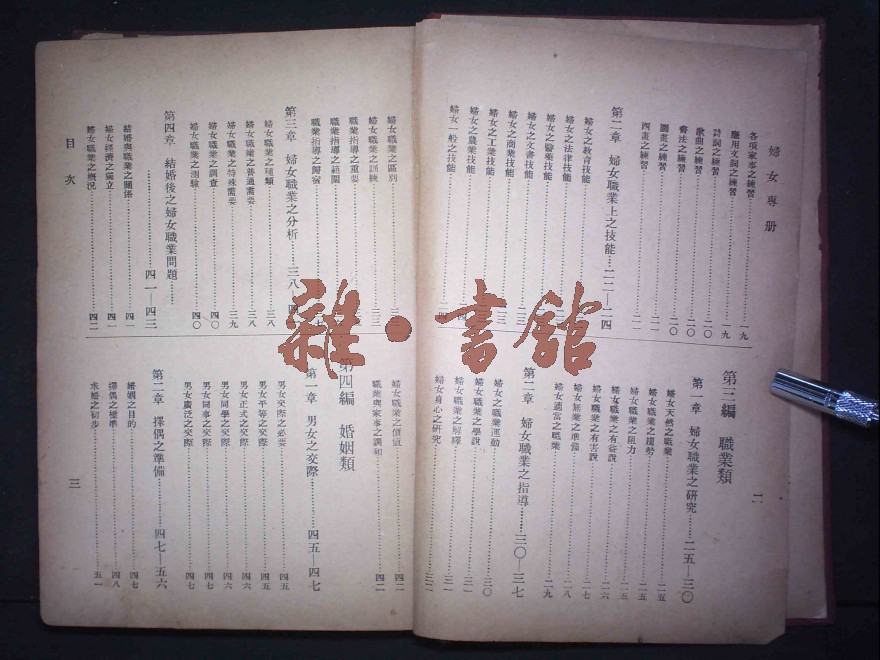 婦女專册
各項家事之練習……一九
應用文詞之練習……一九
詩詞之練習……二〇
歌曲之練習……二〇
書法之練習……二〇
圖畫之練習……二一
四畫之練習……二一
第二章 婦女職業上之技能……二二—二四
婦女之教育技能
婦女之法律技能
婦女之醫藥技能
婦女之文書技能
婦女之商業技能
婦女之工業技能
婦女之農業技能
婦女一般之技能
第三編 職業類
第一章 婦女職業之研究……二五—三〇
婦女天然之職業……二五
婦女職業之趨勢……二五
婦女職業之阻力……二五
婦女職業之有益說……二六
婦女職業之有害說……二七
婦女無業之準備……二八
婦女適當之職業……二九
第二章 婦女職業之指導……三〇—三七
婦女之職業運動……三〇
婦女職業之學說……三一
婦女職業之解釋……三一
婦女身心之研究……三二
二
婦女職業之區別
婦女職業之訓練
職業指導之重要
職業指導之範圍
職業指導之歸宿
第三章 婦女職業之分析……三八
婦女職業之種類……三八
婦女職業之普通需要……三八
婦女職業之特殊需要……三九
婦女職業之調查……四〇
婦女職業之測驗……四〇
第四章 結婚後之婦女職業問題……
……四一—四三
結婚與職業之關係……四一
婦女經濟之獨立……四一
婦女職業之概況……四二
婦女職業之價值……四二
職業與家事之調和……四二
第四編 婚姻類
第一章 男女之交際……四五—四七
男女交際之必要……四五
男女平等之交際……四五
男女正式之交際……四六
男女同學之交際……四六
男女同事之交際……四七
男女廣泛之交際……四七
第二章 擇偶之準備……四七—五六
婚姻之目的……四七
擇偶之標準……四八
求婚之初步……五一
目次
三
雜·書館